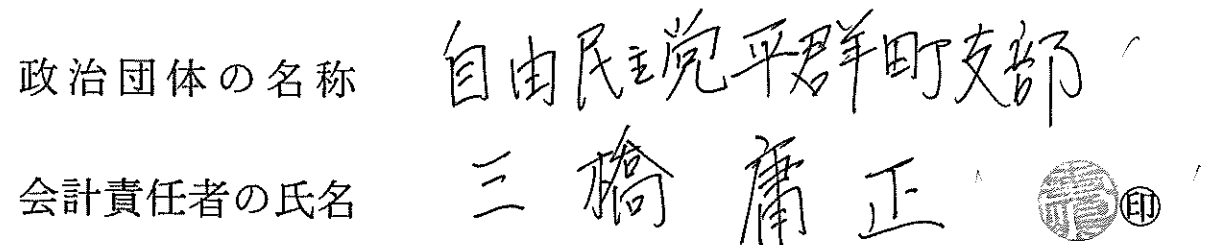 政治団体の名称 自由民主党平群町支部
会計責任者の氏名 三橋庸正 印